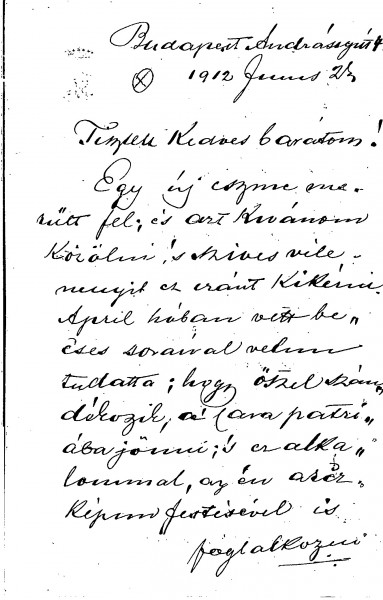 Budapest Andrássy út 4.
1912 Junius 2
Tisztelt Kedves barátom!
Egy új eszme me-
rült fel; és azt Kivánom
Közölni, 's szives véle-
ményit ez eránt Kikérni.
April hóban vett be„
cses soraival velem
tudatta; hogy őszel szán„
dékozik, a' Cara patri„
ába jönni; 's ez alka„
lommal, az én arcz„
Képem festésével is
foglalkozni